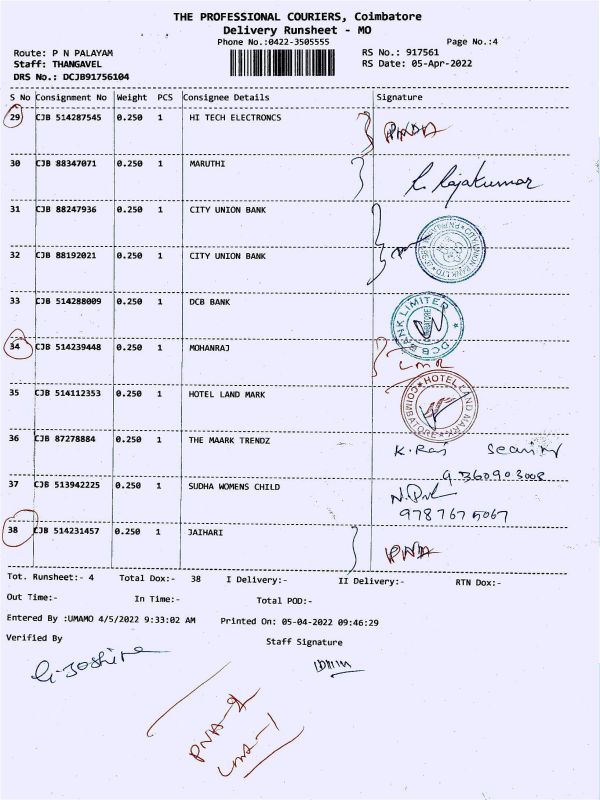 THE PROFESSIONAL COURIERS, Coimbatore
Delivery Runsheet - MO
Phone No.:0422-3505555 Page No.:4
Route: P N PALAYAM RS No.: 917561
Staff: THANGAVEL RS Date: 05-Apr-2022
DRS No.: DCJB91756104
S No Consignment No Weight PCS Consignee Details Signature
29 CJB 514287545 0.250 1 HI TECH ELECTRONCS
30 CJB 88347071 0.250 1 MARUTHI
R. Rajakumar
31 CJB 88247936 0.250 1 CITY UNION BANK
32 CJB 88192021 0.250 1 CITY UNION BANK
33 CJB 514288009 0.250 1 DCB BANK
DCB BANK LIMITED COIMBATORE
34 CJB 514239448 0.250 1 MOHANRAJ
35 CJB 514112353 0.250 1 HOTEL LAND MARK
HOTEL LAND MARK COIMBATORE
36 CJB 87278884 0.250 1 THE MAARK TRENDZ
K. Raj
9360903008
37 CJB 513942225 0.250 1 SUDHA WOMENS CHILD
9787675067
38 CJB 514231457 0.250 1 JAIHARI PNA
Tot. Runsheet:- 4 Total Dox:- 38 I Delivery:- II Delivery:- RTN Dox:-
Out Time:- In Time:- Total POD:-
Entered By :UMAMO 4/5/2022 9:33:02 AM Printed On: 05-04-2022 09:46:29
Verified By Staff Signature
PNA-2